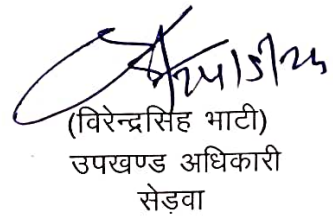 24/5/24
(विरेन्द्रसिंह भाटी)
उपखण्ड अधिकारी
सेड़वा